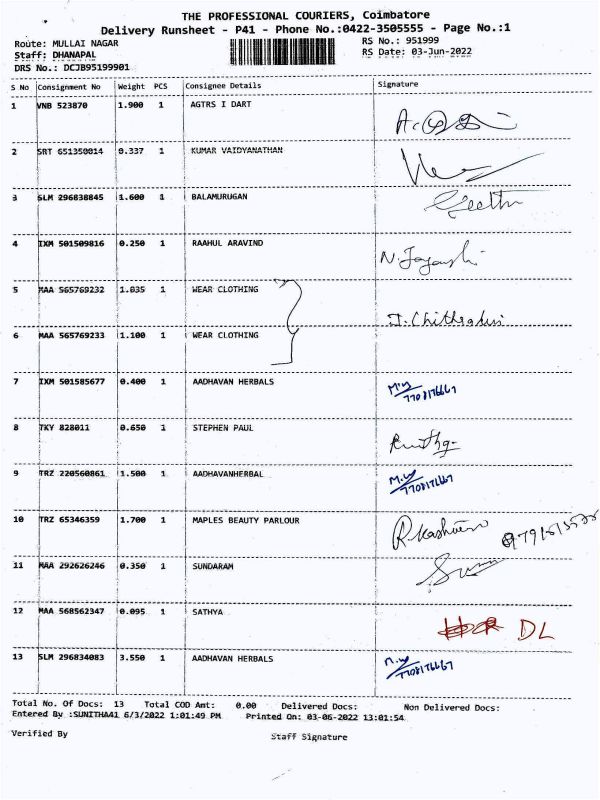 THE PROFESSIONAL COURIERS, Coimbatore
Delivery Runsheet - P41 - Phone No.:0422-3505555 - Page No.:1
Route: MULLAI NAGAR RS No.: 951999
Staff: DHANAPAL RS Date: 03-Jun-2022
DRS No.: DCJB95199901
S No Consignment No Weight PCS Consignee Details Signature
1 VNB 523870 1.900 1 AGTRS I DART
2 SRT 651350014 0.337 1 KUMAR VAIDYANATHAN
3 SLM 296838845 1.600 1 BALAMURUGAN Geetha
4 IXM 501509816 0.250 1 RAAHUL ARAVIND
5 MAA 565769232 1.035 1 WEAR CLOTHING
6 MAA 565769233 1.100 1 WEAR CLOTHING
7 IXM 501585677 0.400 1 AADHAVAN HERBALS
7708176667
8 TKY 828011 0.650 1 STEPHEN PAUL
9 TRZ 220560861 1.500 1 AADHAVANHERBAL
7708176667
10 TRZ 65346359 1.700 1 MAPLES BEAUTY PARLOUR
11 MAA 292626246 0.350 1 SUNDARAM
12 MAA 568562347 0.095 1 SATHYA DL
13 SLM 296834083 3.550 1 AADHAVAN HERBALS
7708176667
Total No. Of Docs: 13 Total COD Amt: 0.00 Delivered Docs: Non Delivered Docs:
Entered By :SUNITHA41 6/3/2022 1:01:49 PM Printed On: 03-06-2022 13:01:54
Verified By Staff Signature